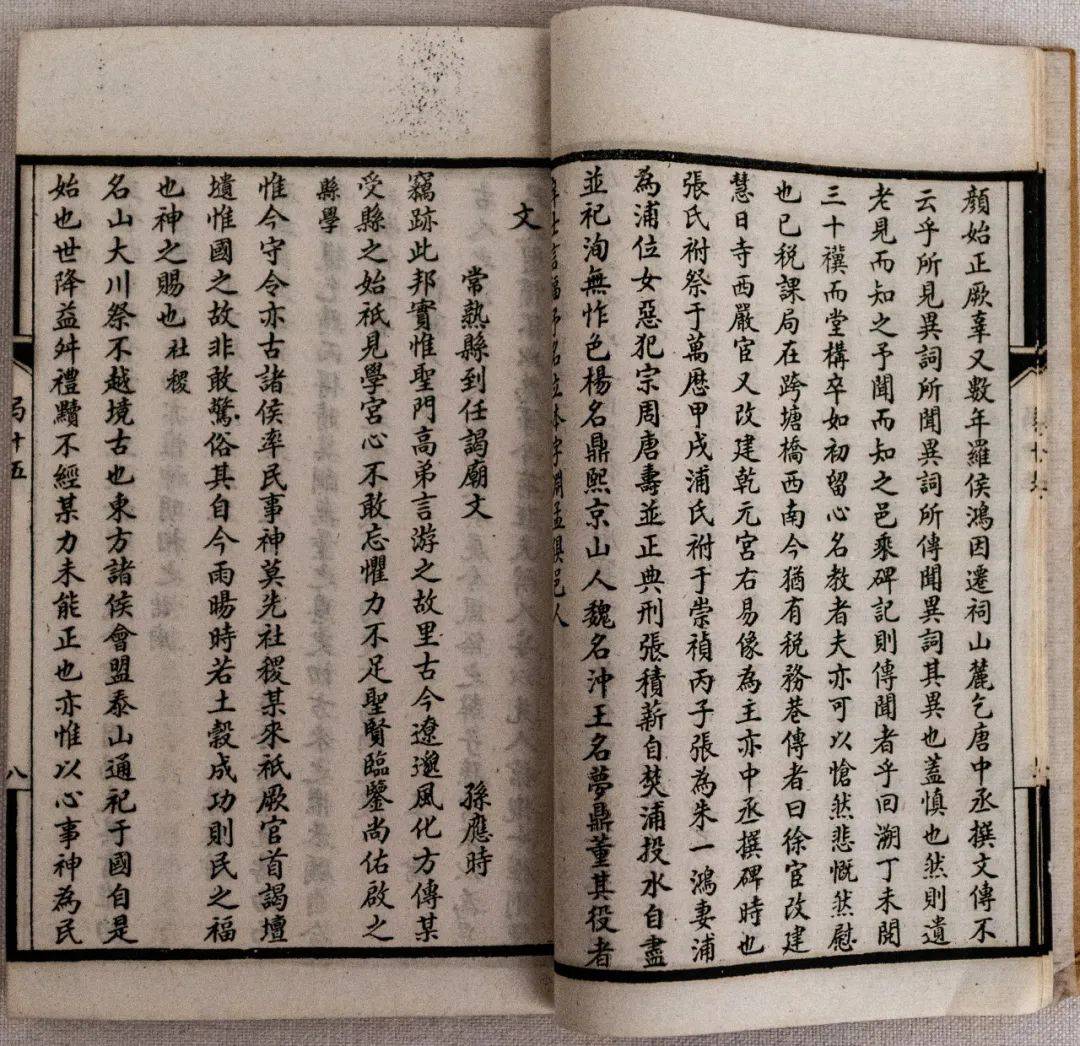 顏始正厥辜又數年羅侯鴻因遷祠山麓乞唐中丞撰文傳不
云乎所見異詞所聞異詞所傳聞異詞其異也蓋慎也然則遺
老見而知之予聞而知之邑乘碑記則傳聞者乎回溯丁未閱
三十禩而堂構卒如初留心名教者夫亦可以愴然悲慨然慰
也已稅課局在跨塘橋西南今猶有稅務巷傳者曰徐宦改建
慧日寺西嚴宦又改建乾元宮右易像為主亦中丞撰碑時也
張氏祔祭于萬歷甲戌浦氏祔于崇禎丙子張為朱一鴻妻浦
為浦位女惡犯宗周唐壽並正典刑張積薪自焚浦投水自盡
並祀洵無怍色楊名鼎熙京山人魏名沖王名夢鼎董其役者
邑人
文
常熟縣到任謁廟文 孫應時
竊跡此邦實惟聖門高弟言游之故里古今遼邈風化方傳某
受縣之始祇見學宮心不敢忘懼力不足聖賢臨鑒尚佑啟之
縣學
惟今守令亦古諸侯率民事神莫先社稷某來祇厥官首謁壇
壝惟國之故非敢驚俗其自今雨暘時若土穀成功則民之福
也神之賜也 社稷
名山大川祭不越境古也東方諸侯會盟泰山通祀于國自是
始也世降益舛禮黷不經某力未能正也亦惟以心事神為民
十五
八